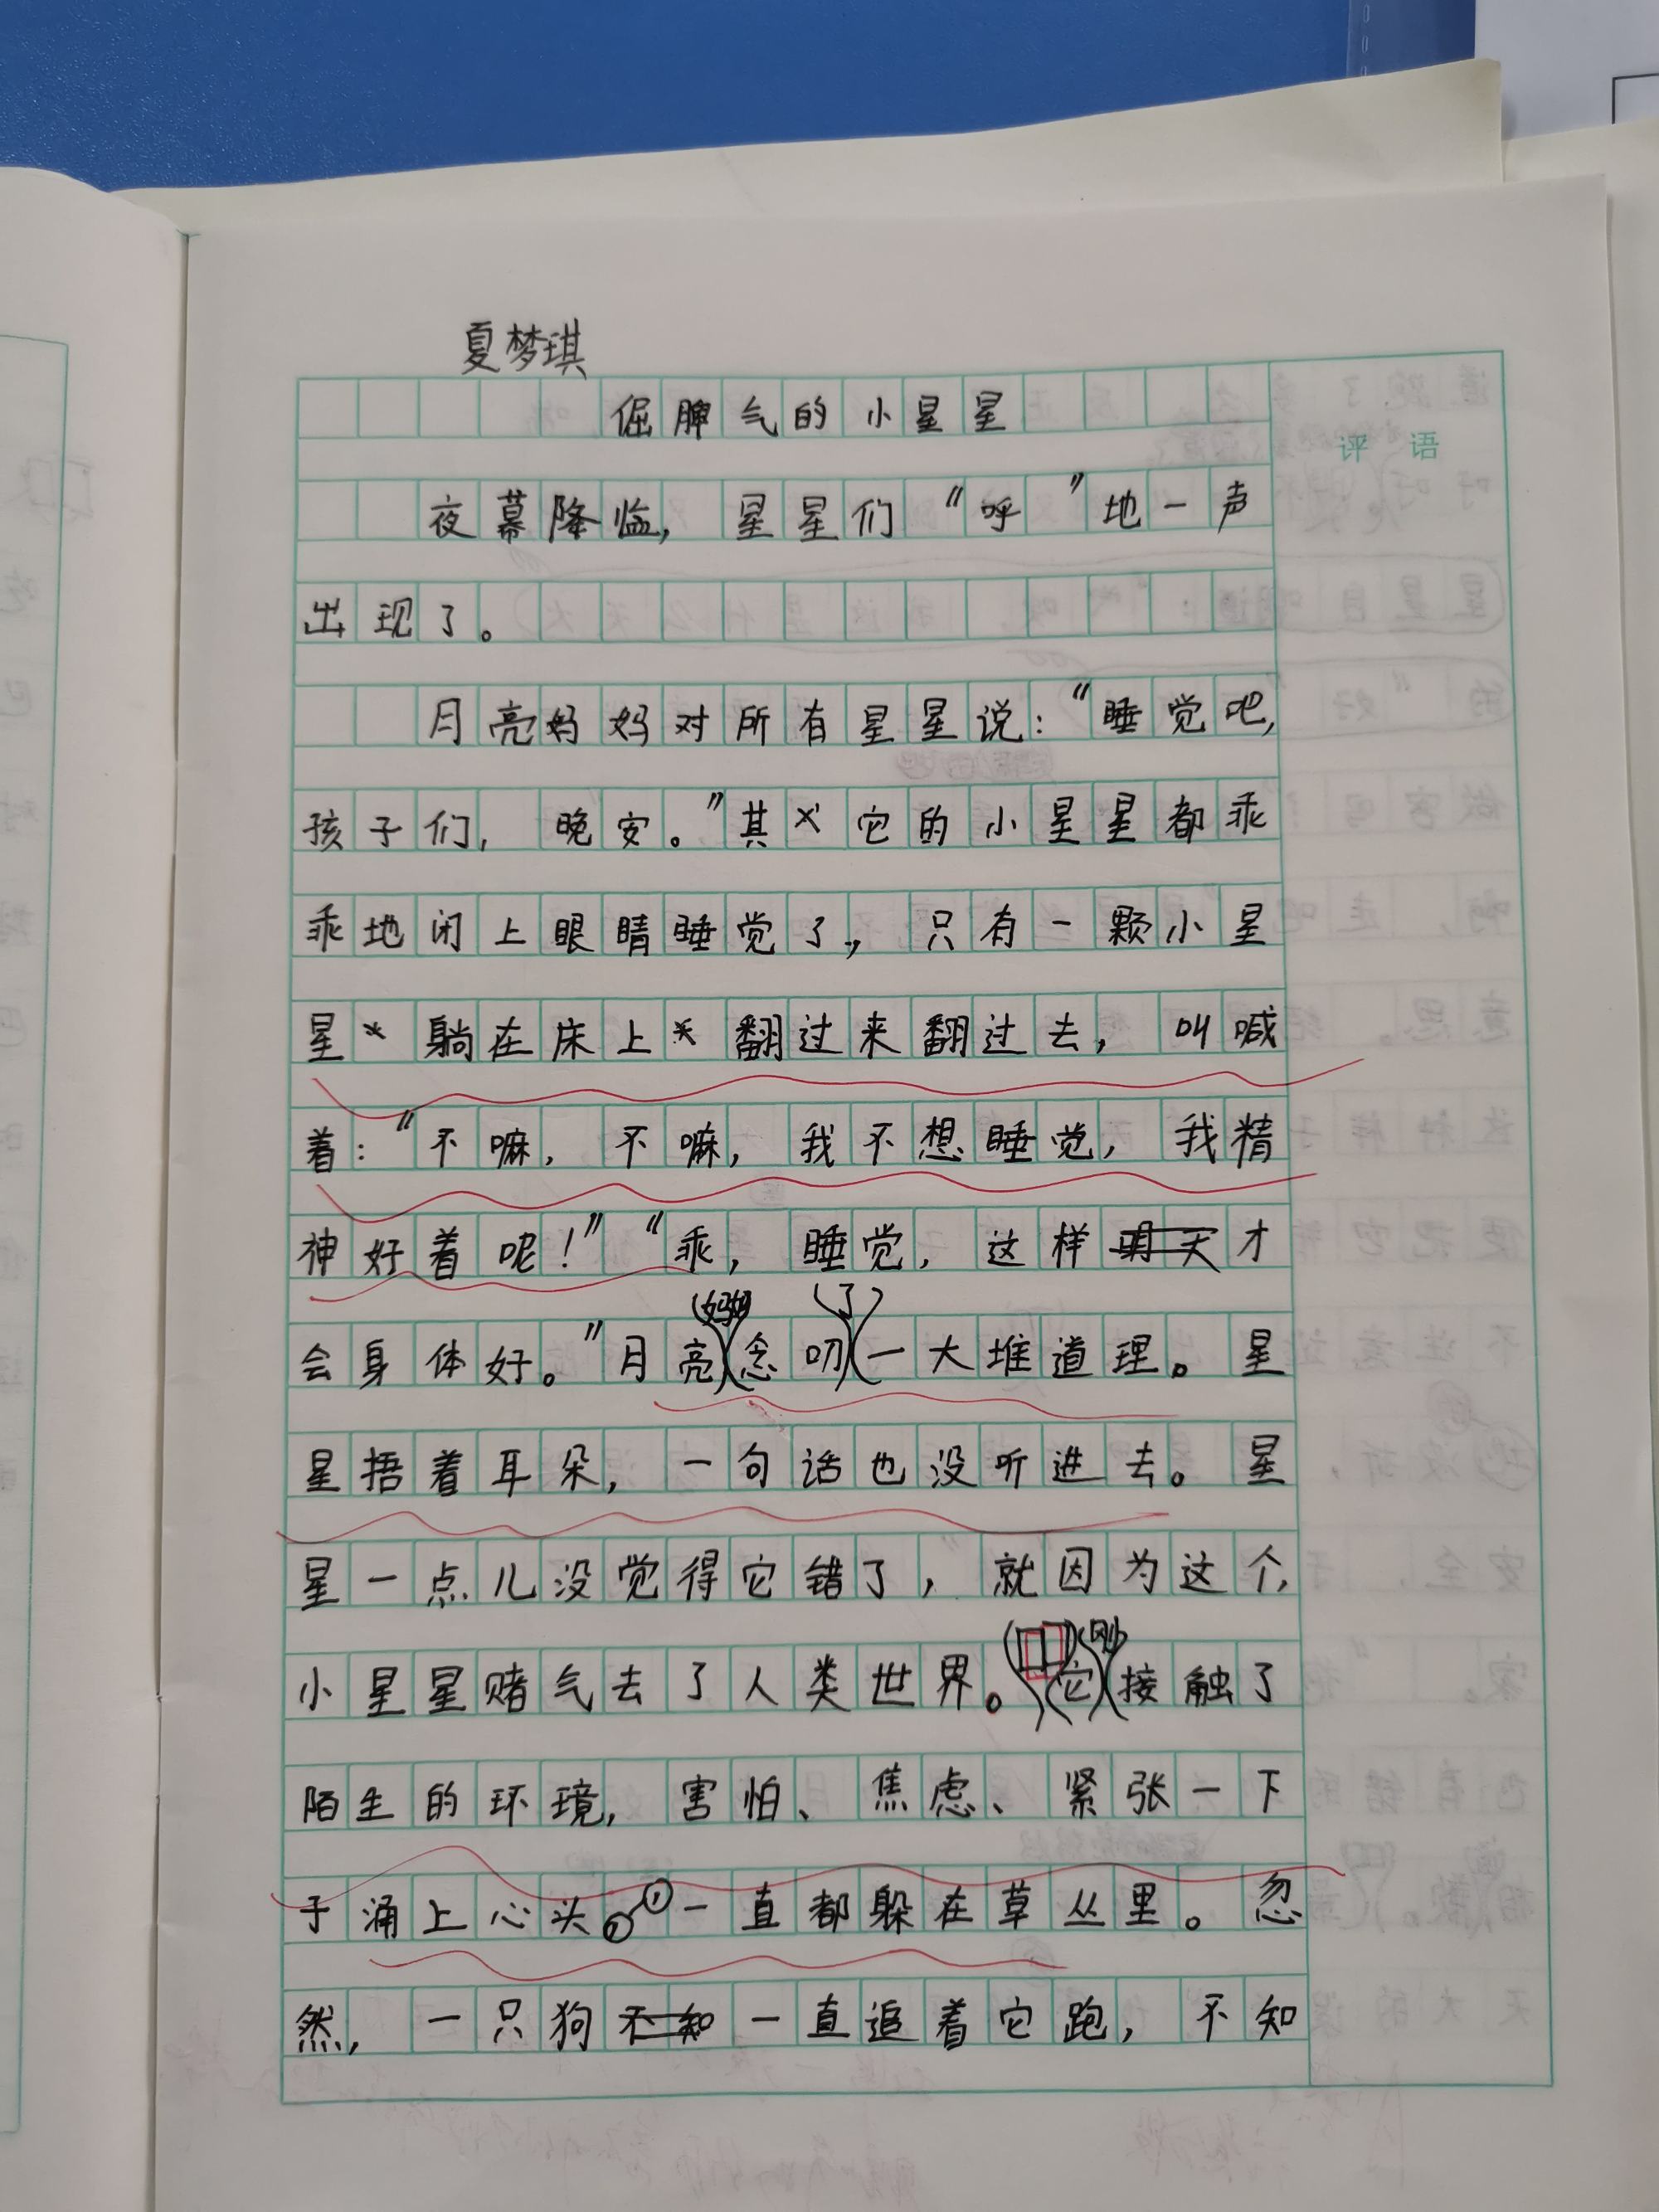 夏梦琪
倔脾气的小星星
评语
夜幕降临，星星们“呼”地一声
出现了。
月亮妈妈对所有星星说：“睡觉吧，
孩子们，晚安。”其它的小星星都乖
乖地闭上眼睛睡觉了，只有一颗小星
星躺在床上翻过来翻过去，叫喊
着：“不嘛，不嘛，我不想睡觉，我精
神好着呢！”“乖，睡觉，这样明天才
会身体好。”月亮（妈妈）念叨（了）一大堆道理。星
星捂着耳朵，一句话也没听进去。星
星一点儿没觉得它错了，就因为这个，
小星星赌气去了人类世界。它（刚）接触了
陌生的环境，害怕、焦虑、紧张一下
于涌上心头。一直都躲在草丛里。忽
然，一只狗不知一直追着它跑，不知